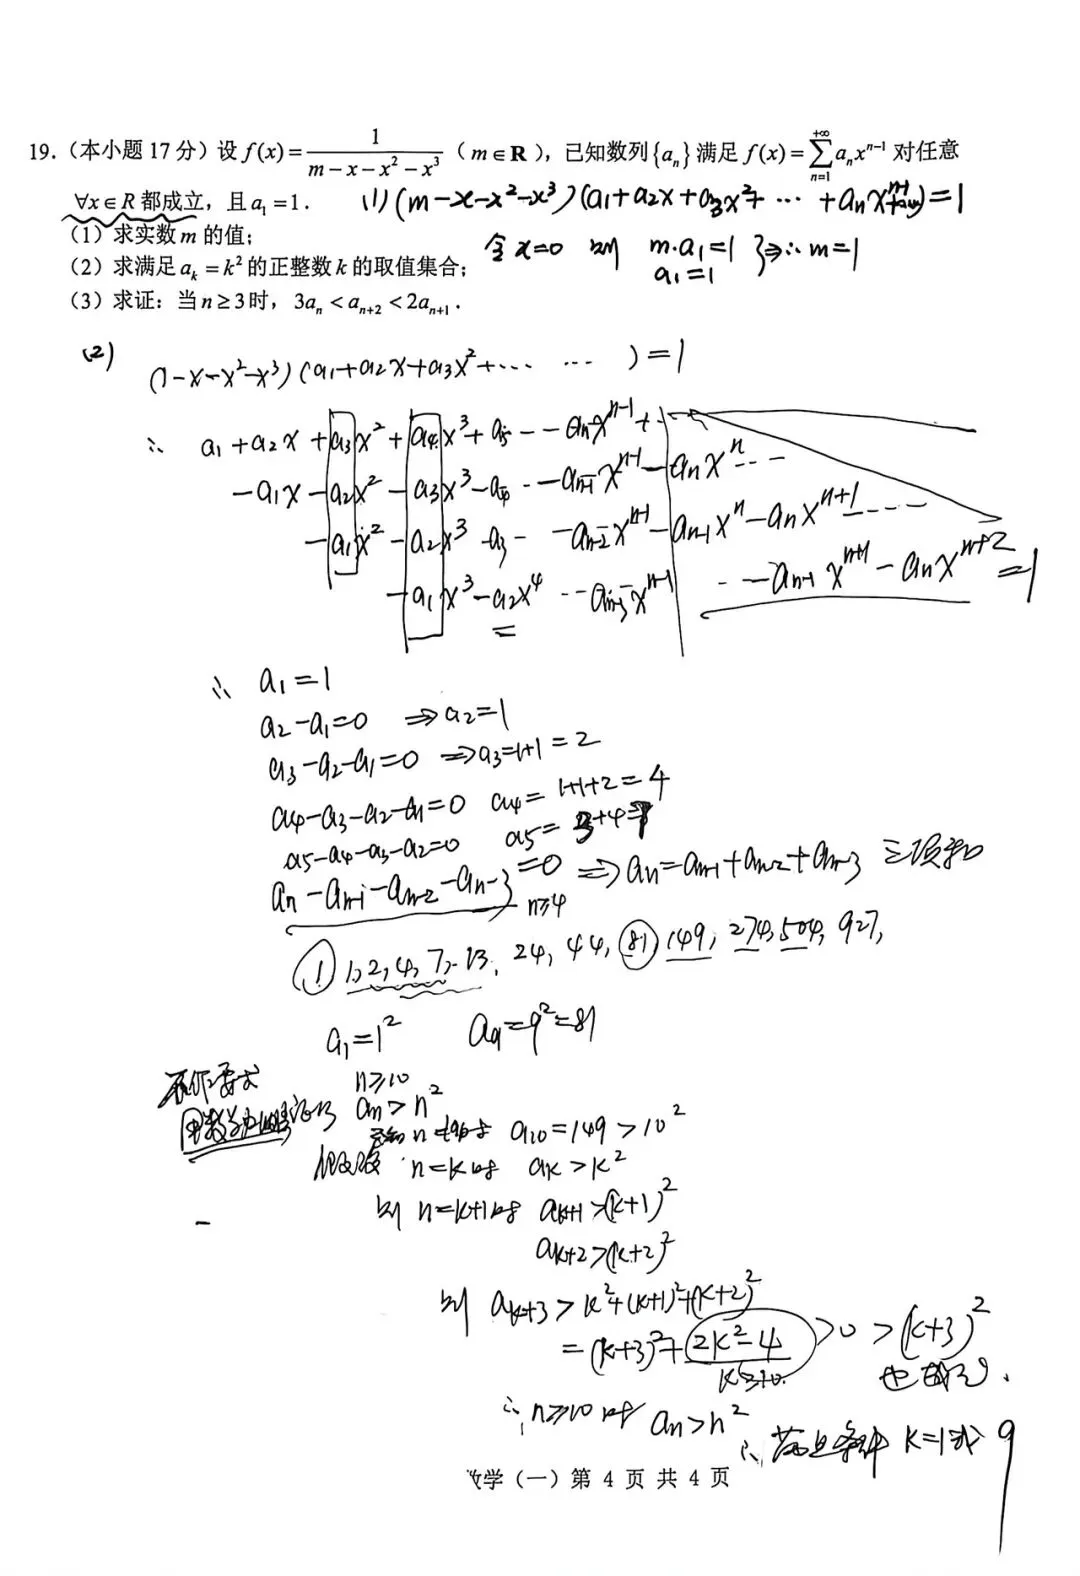 19.（本小题17分）设 f(x)=1/(m-x-x²-x³)（m∈R），已知数列{aₙ}满足 f(x)=∑_{n=1}^{+∞} aₙxⁿ⁻¹ 对任意
∀x∈R 都成立，且 a₁=1.
(1) (m-x-x²-x³)(a₁+a₂x+a₃x²+ ⋯ +aₙxⁿ⁻¹)=1
（1）求实数 m 的值；
令 x=0 则 m·a₁=1 a₁=1 }⇒∴ m=1
（2）求满足 aₖ=k² 的正整数 k 的取值集合；
（3）求证：当 n≥3 时，3aₙ<aₙ₊₂<2aₙ₊₁.
(2)
(1-x-x²-x³)(a₁+a₂x+a₃x²+⋯⋯ ⋯ )=1
∴ a₁+a₂x+a₃x²+a₄x³+a₅---aₙxⁿ⁻¹+
-a₁x-a₂x²-a₃x³-a₄---aₙ₋₁xⁿ⁻¹-aₙxⁿ---
-a₁x²-a₂x³-a₃- -aₙ₋₂xⁿ⁻¹-aₙ₋₁xⁿ-aₙxⁿ⁺¹----
-a₁x³-a₂x⁴---aₙ₋₃xⁿ⁻¹ ---aₙ₋₁xⁿ⁺¹-aₙxⁿ⁺²=1
∴ a₁=1
a₂-a₁=0 ⇒a₂=1
a₃-a₂-a₁=0 ⇒a₃=1+1=2
a₄-a₃-a₂-a₁=0 a₄=1+1+2=4
a₅-a₄-a₃-a₂=0 a₅=3+4=7
aₙ-aₙ₋₁-aₙ₋₂-aₙ₋₃=0 n≥4 ⇒aₙ=aₙ₋₁+aₙ₋₂+aₙ₋₃ 三项和
① 1,2,4,7,13,24,44,81,149,274,504,927,
a₁=1² a₉=9²=81
不作要求 n≥10
用数学归纳法证明 aₙ>n²
n=10时 a₁₀=149>10²
假设 n=k时 aₖ>k²
则 n=k+1时 aₖ₊₁>(k+1)²
aₖ₊₂>(k+2)²
则 aₖ₊₃>k²+(k+1)²+(k+2)²
=(k+3)²+2k²-4>0 >(k+3)²
k≥10. 也成立.
∴n≥10时 aₙ>n²
∴ 满足条件 k=1或9
数学（一）第 4 页 共 4 页